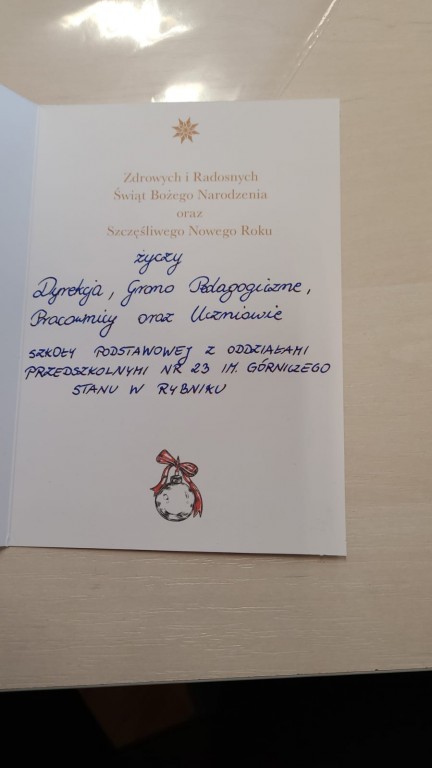 Zdrowych i Radosnych
Świąt Bożego Narodzenia
oraz
Szczęśliwego Nowego Roku
życzy
Dyrekcja, Grono Pedagogiczne,
Pracownicy oraz Uczniowie
SZKOŁY PODSTAWOWEJ Z ODDZIAŁAMI
PRZEDSZKOLNYMI NR 23 IM. GÓRNICZEGO
STANU W RYBNIKU